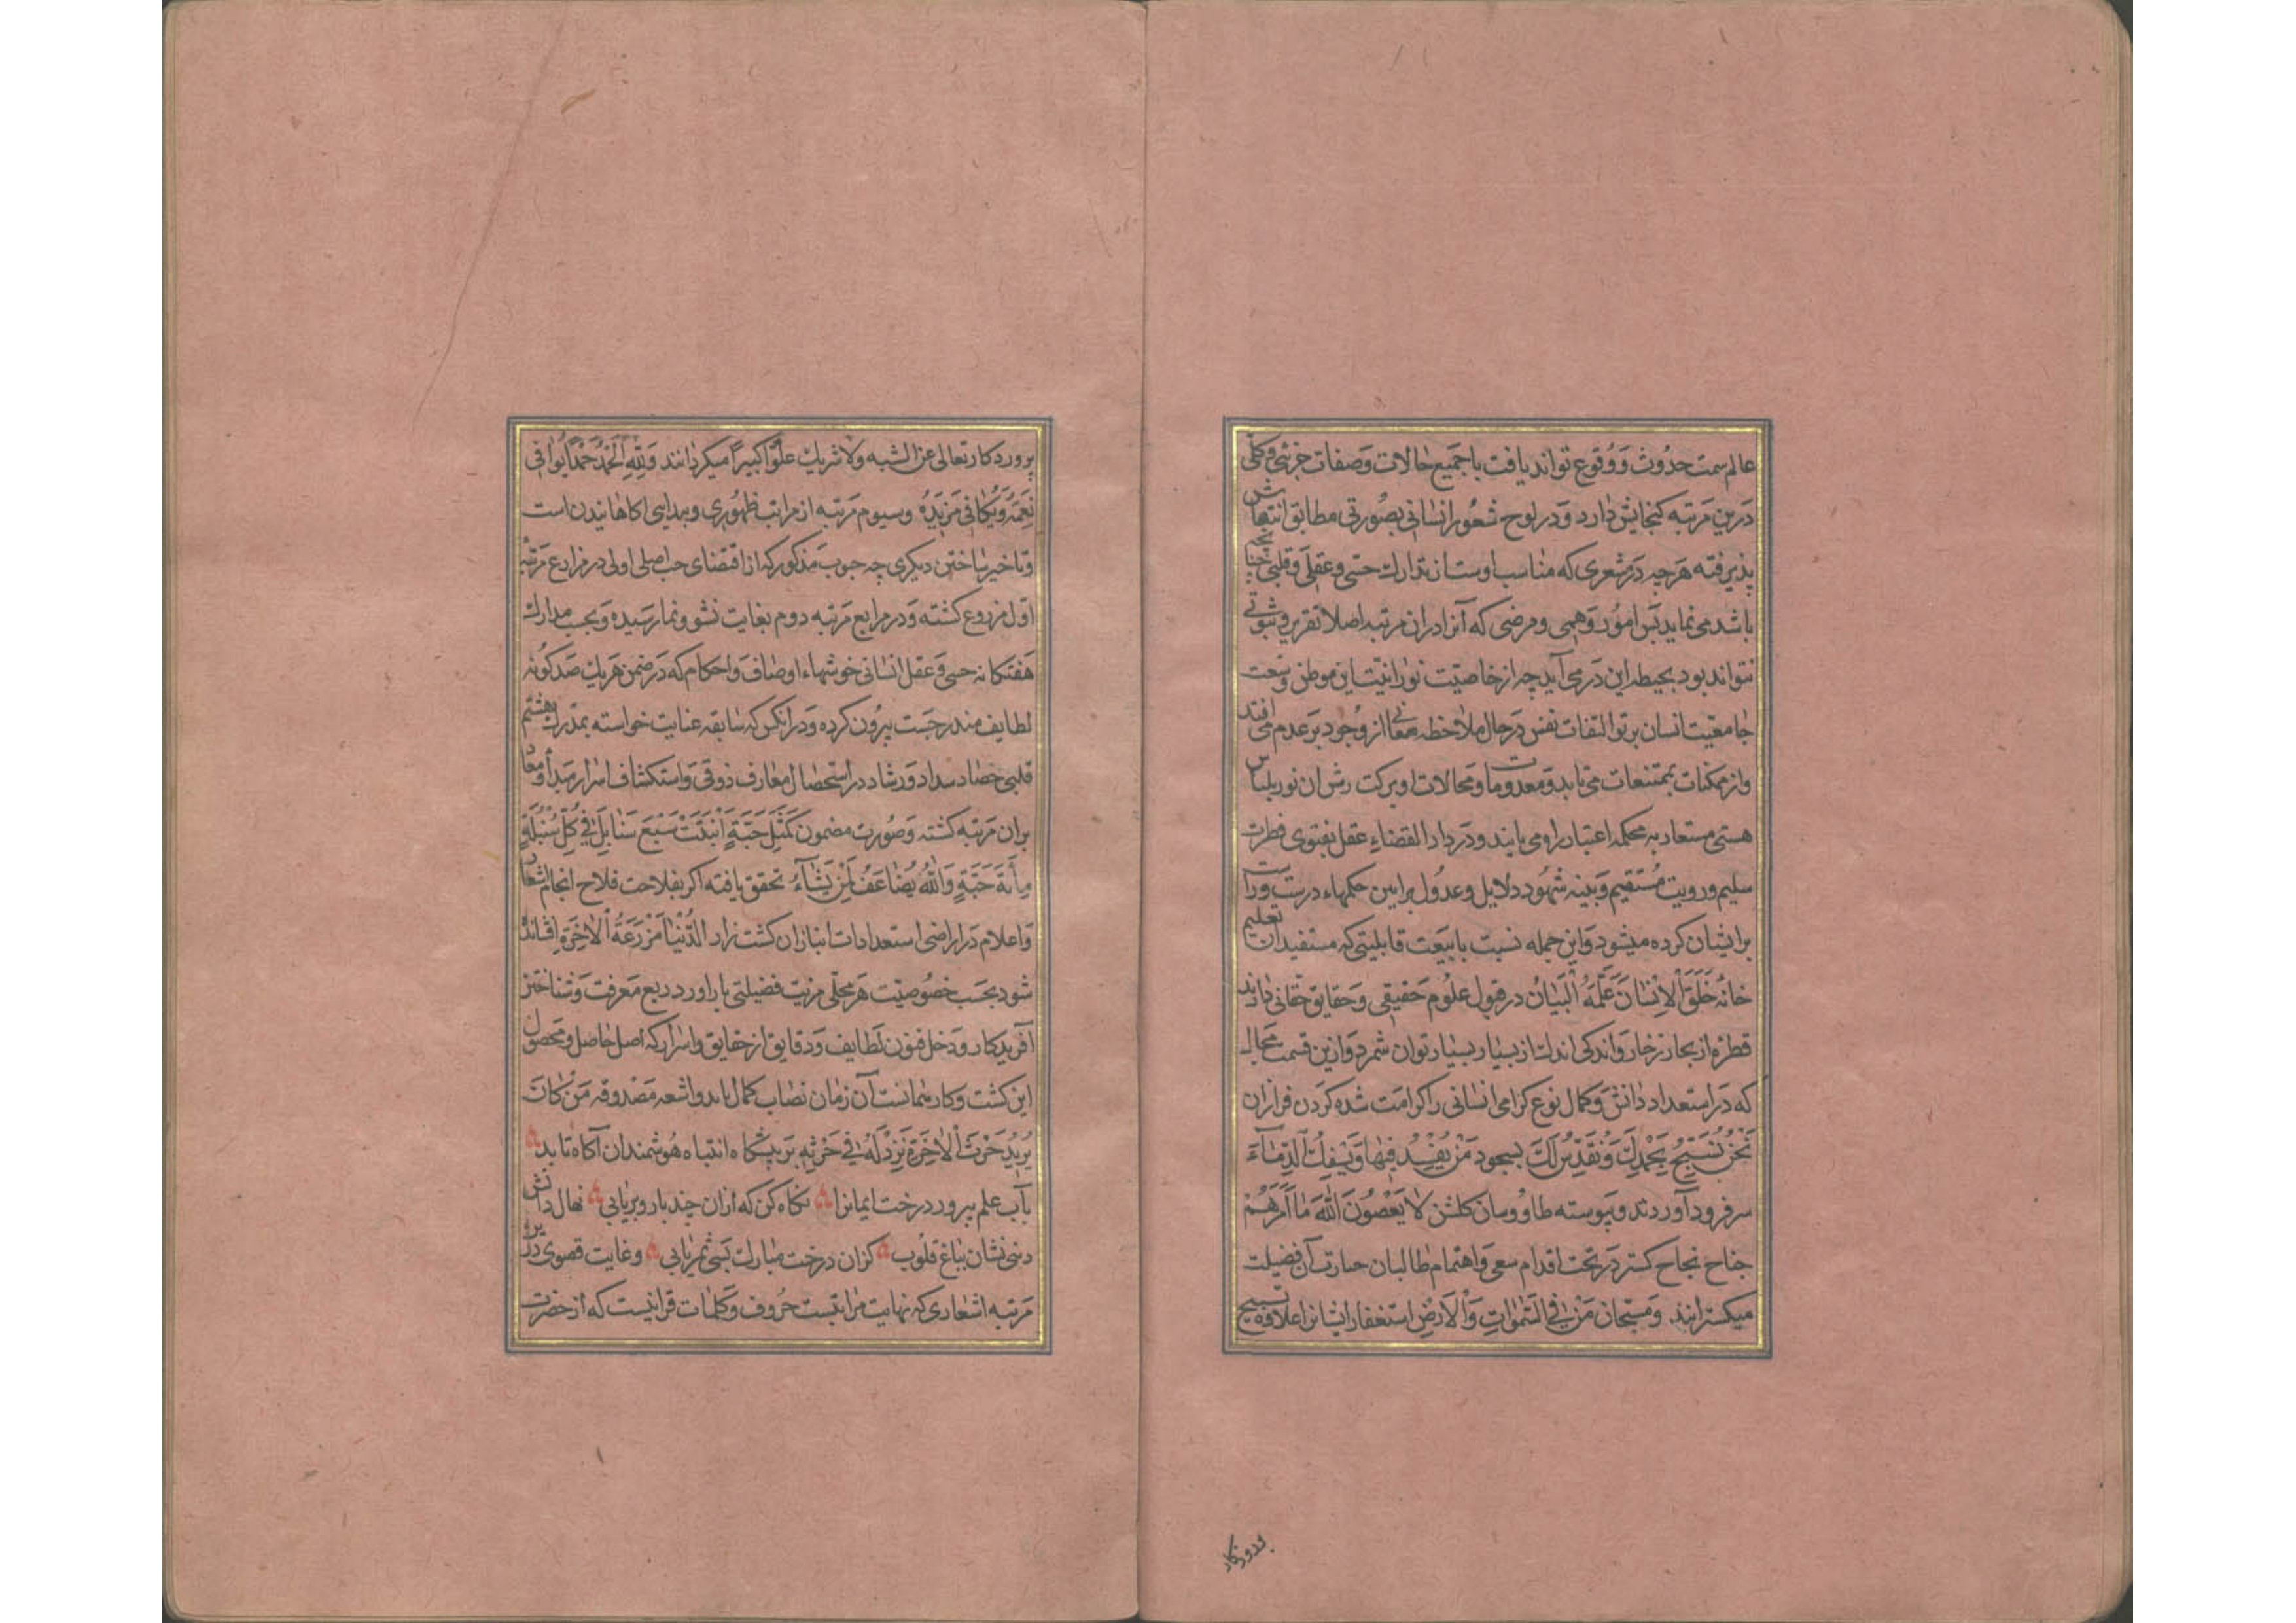 عالم سمت حدوث و وقوع تواند یافت با جمیع حالات و صفات جزئی و کلی
درین مرتبه کنجایش دارد و در لوح شعور انسانی بصورتی مطابق انتهاش
پذیرفته هرچه در مشعری که مناسب اوست از مدارک حسی و عقلی و قلبی
باشد می نماید پس امور وهمی و فرضی که آنرا در ان مرتبه اصلا تقریر و ثبوتی
نتواند بود بحیطه این در می آید چه از خاصیت نورانیت این موطن وسعت
جامعیت انسان پرتو التفات نفس در حال ملاحظه معانی از وجود بر عدم می افتد
و از ممکنات بممتنعات می تابد و معدومات و محالات او ببرکت رش ان نور بلباس
هستی مستعار به محکمه اعتبار راه می یابند و در دار القضاء عقل بفتوی فطرت
سلیم و رویت مستقیم و بینه شهود دلایل و عدول براهین حکمهاء درست و راست
برایشان کرده میشود و این جمله نسبت با تبعت قابلیتی که مستفیدان تعلیم
خانهٔ خَلَقَ الْاِنْسَانَ عَلَّمَهُ الْبَیَانَ در قبول علوم حقیقی و حقایق حقانی دارند
قطرهٔ از بحار زخار و اندکی اندک از بسیار بسیار توان شمرد و ازین قسمت مجال
که در استعداد دانش و کمال نوع کرامی انسانی را کرامت شده کردن فرازان
نَحْنُ نُسَبِّحُ بِحَمْدِكَ وَنُقَدِّسُ لَكَ بسجود مَنْ یُفْسِدُ فِیهَا وَیَسْفِكُ الدِّمَاءَ
سر فرود آوردند و پیوسته طاووسان کلشن لَا یَعْصُونَ اللهَ مَا اَمَرَهُمْ
جناح نجاح کستر در تحت اقدام سعی و اهتمام طالبان حیازت آن فضیلت
میکسترانند و مسبحان مَنْ فِی السَّمٰوَاتِ وَالْاَرْضِ استغفار ایشانرا علاوه تسبیح
پروردکار
پروردکار تعالی عن الشبه ولا شریك علوًّا کبیرًا میکردانند وَلِلّٰهِ الْحَمْدُ حَمْدًا یُوَافِی
نِعَمَهُ وَیُکَافِی مَزِیدَهُ و سیوم مرتبه از مراتب ظهوری و پیدایی اکاهانیدن است
و تاخیر شناختن دیکری چه حبوب مذکور که از اقتضای حب اصلی اولی در مزارع مرتبه
اول مزروع کشته و در مرابع مرتبه دوم بغایت نشو و نما رسیده و بحسب مدارک
هفتکانه حسی و عقل انسانی خوشهاء اوصاف و احکام که در ضمن هریک صد کونه
لطایف مندرجست بیرون کرده و در انکس که سابقه عنایت خواسته بمدرک هشتم
قلبی حصاد سداد و رشاد در استحصال معارف ذوقی و استکشاف اسرار مبدأ و معاد
بران مرتبه کشته و صورت مضمون کَمَثَلِ حَبَّةٍ اَنْبَتَتْ سَبْعَ سَنَابِلَ فِی کُلِّ سُنْبُلَةٍ
مِأَةُ حَبَّةٍ وَاللهُ یُضَاعِفُ لِمَنْ یَشَاءُ تحقق یافته اکر بفلاحت فلاح انجام اشعار
و اعلام در اراضی استعدادات انبازان کشت زار الدُّنْیَا مَزْرَعَةُ الْاٰخِرَةِ افشانده
شود بحسب خصوصیت هر محلی مزیت فضیلتی بار اورد در ریع معرفت و شناختن
آفریدکار و دخل فنون لطایف و دقایق از حقایق و اسرار که اصل حاصل و محصول
این کشت و کار همانست آن زمان نصاب کمال یابد و اشعه مصدوقه مَنْ کَانَ
یُرِیدُ حَرْثَ الْاٰخِرَةِ نَزِدْ لَهُ فِی حَرْثِهِ بر پیشکاه انتباه هوشمندان آکاه تابد
بآب علم بپرور درخت ایمانرا نکاه کن که ازان چند بار و بر یابی نهال دانش
دینی نشان بباغ قلوب کزان درخت مبارک بسی ثمر یابی و غایت قصوی درین
مرتبه اشعاری که نهایت مراتبست حروف و کلمات قرانیست که از حضرت